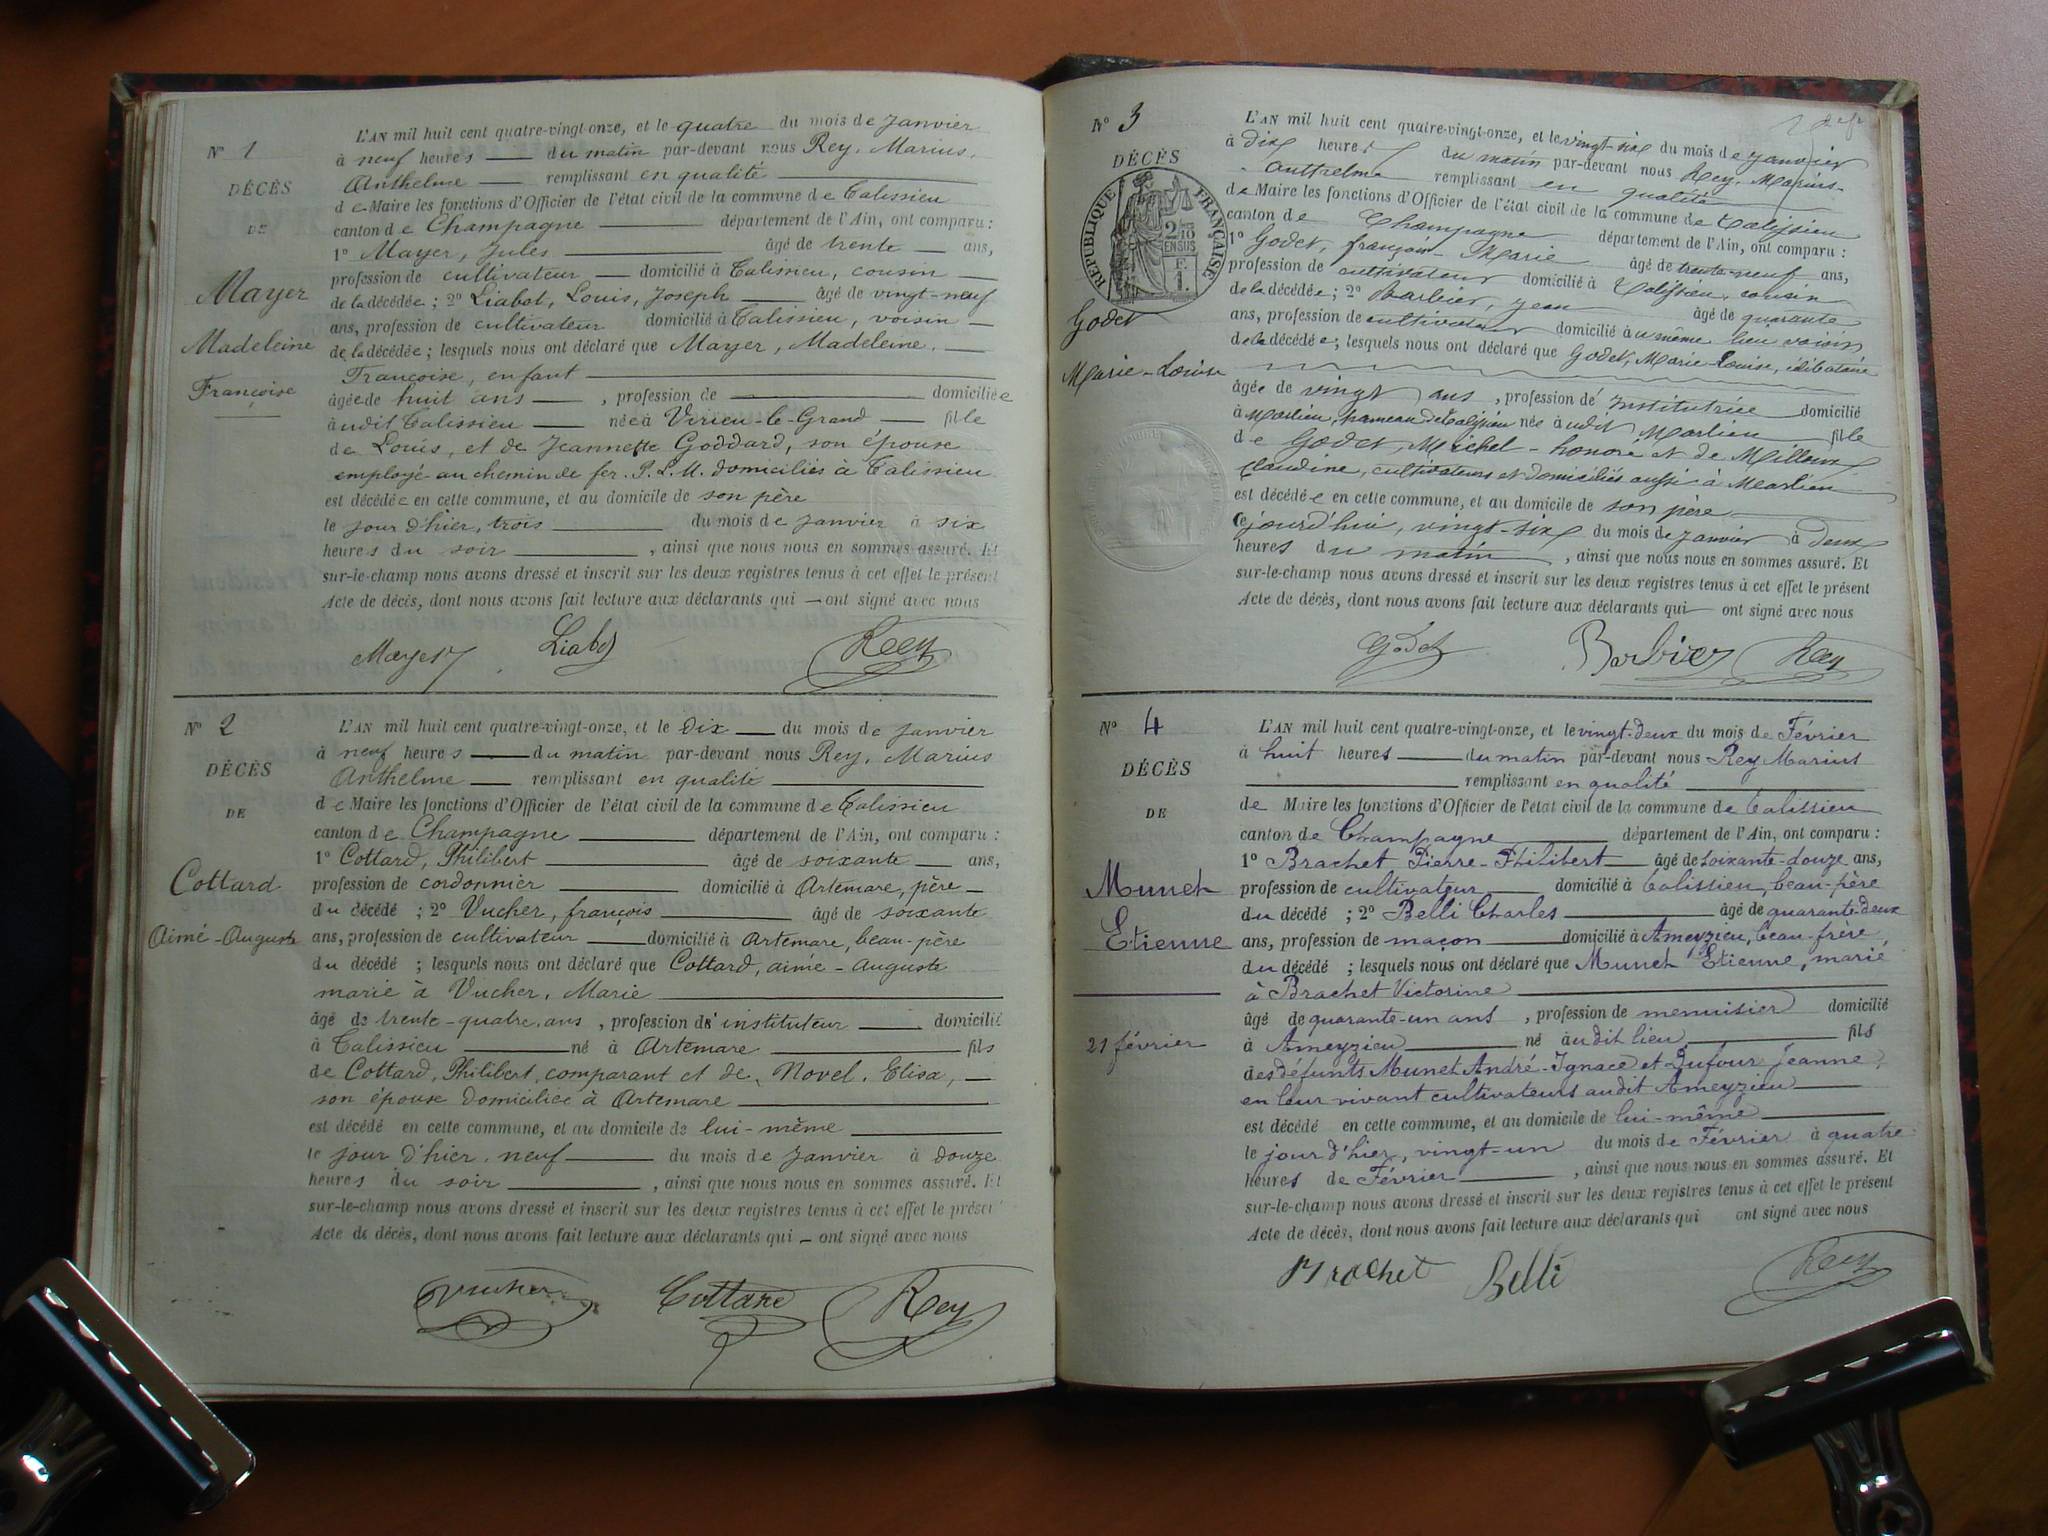 N° 1
DÉCÈS
DE
Mayer
Madeleine
Françoise
L'AN mil huit cent quatre-vingt-onze, et le quatre du mois de Janvier
à neuf heures du matin par-devant nous Rey, Marius,
Anthelme remplissant en qualité
de Maire les fonctions d'Officier de l'état civil de la commune de Talissieu
canton de Champagne département de l'Ain, ont comparu :
1° Mayer, Jules âgé de trente ans,
profession de cultivateur domicilié à Talissieu, cousin
de la décédée ; 2° Liabot, Louis, Joseph âgé de vingt-neuf
ans, profession de cultivateur domicilié à Talissieu, voisin
de la décédée ; lesquels nous ont déclaré que Mayer, Madeleine,
Françoise, enfant
âgée de huit ans , profession de domiciliée
audit Talissieu née à Virieu-le-Grand fille
de Louis, et de Jeannette Goddard, son épouse
employé au chemin de fer. P.L.M. domiciliés à Talissieu
est décédée en cette commune, et au domicile de son père
le jour d'hier, trois du mois de Janvier à six
heures du soir , ainsi que nous nous en sommes assuré. Et
sur-le-champ nous avons dressé et inscrit sur les deux registres tenus à cet effet le présent
Acte de décès, dont nous avons fait lecture aux déclarants qui ont signé avec nous
Mayer Liabot Rey
N° 2
DÉCÈS
DE
Cottard
Aimé-Auguste
L'AN mil huit cent quatre-vingt-onze, et le Dix du mois de Janvier
à neuf heures du matin par-devant nous Rey, Marius
Anthelme remplissant en qualité
de Maire les fonctions d'Officier de l'état civil de la commune de Talissieu
canton de Champagne département de l'Ain, ont comparu :
1° Cottard, Philibert âgé de soixante ans,
profession de cordonnier domicilié à Artemare, père
du décédé ; 2° Vucher, françois âgé de soixante
ans, profession de cultivateur domicilié à Artemare, beau-père
du décédé ; lesquels nous ont déclaré que Cottard, aimé-Auguste
marié à Vucher, Marie
âgé de trente-quatre, ans , profession d'instituteur domicilié
à Talissieu né à Artemare fils
de Cottard, Philibert, comparant et de, Novel, Elisa,
son épouse domiciliée à Artemare
est décédé en cette commune, et au domicile de lui-même
le jour d'hier, neuf du mois de Janvier à douze
heures du soir , ainsi que nous nous en sommes assuré. Et
sur-le-champ nous avons dressé et inscrit sur les deux registres tenus à cet effet le présent
Acte de décès, dont nous avons fait lecture aux déclarants qui ont signé avec nous
Vucher Cottard Rey
N° 3
DÉCÈS
RÉPUBLIQUE FRANÇAISE
2/10 EN SUS
F. 1.
Godet
Marie-Louise
L'AN mil huit cent quatre-vingt-onze, et le vingt-six du mois de Janvier
à dix heures du matin par-devant nous Rey, Marius-
Anthelme remplissant en qualité
de Maire les fonctions d'Officier de l'état civil de la commune de Talissieu
canton de Champagne département de l'Ain, ont comparu :
1° Godet, françois-Marie âgé de trente-neuf ans,
profession de cultivateur domicilié à Talissieu, cousin
de la décédée ; 2° Barbier, Jean âgé de quarante
ans, profession de cultivateur domicilié au même lieu voisin
de la décédée ; lesquels nous ont déclaré que Godet, Marie-Louise, célibataire
âgée de vingt ans , profession d'Institutrice domicilié
à Marlieu, hameau de Talissieu née audit Marlieu fille
de Godet, Michel-honoré et de Milloux
Claudine, cultivateurs et domiciliés aussi à Marlieu
est décédée en cette commune, et au domicile de son père
ce jourd'hui, vingt-six du mois de Janvier à deux
heures du matin , ainsi que nous nous en sommes assuré. Et
sur-le-champ nous avons dressé et inscrit sur les deux registres tenus à cet effet le présent
Acte de décès, dont nous avons fait lecture aux déclarants qui ont signé avec nous
Godet Barbier Rey
N° 4
DÉCÈS
DE
Munet
Etienne
21 février
L'AN mil huit cent quatre-vingt-onze, et le vingt-deux du mois de Février
à huit heures du matin par-devant nous Rey Marius
remplissant en qualité
de Maire les fonctions d'Officier de l'état civil de la commune de Talissieu
canton de Champagne département de l'Ain, ont comparu :
1° Brachet Pierre-Philibert âgé de soixante-douze ans,
profession de cultivateur domicilié à Talissieu, beau-père
du décédé ; 2° Belli Charles âgé de quarante-deux
ans, profession de maçon domicilié à Ameyzieu, beau-frère
du décédé ; lesquels nous ont déclaré que Munet Etienne, marié
à Brachet Victorine
âgé de quarante-un ans , profession de menuisier domicilié
à Ameyzieu né audit lieu fils
des défunts Munet André-Ignace et Dufour Jeanne
en leur vivant cultivateurs audit Ameyzieu
est décédé en cette commune, et au domicile de lui-même
le jour d'hier, vingt-un du mois de Février à quatre
heures de Février , ainsi que nous nous en sommes assuré. Et
sur-le-champ nous avons dressé et inscrit sur les deux registres tenus à cet effet le présent
Acte de décès, dont nous avons fait lecture aux déclarants qui ont signé avec nous
Brachet Belli Rey